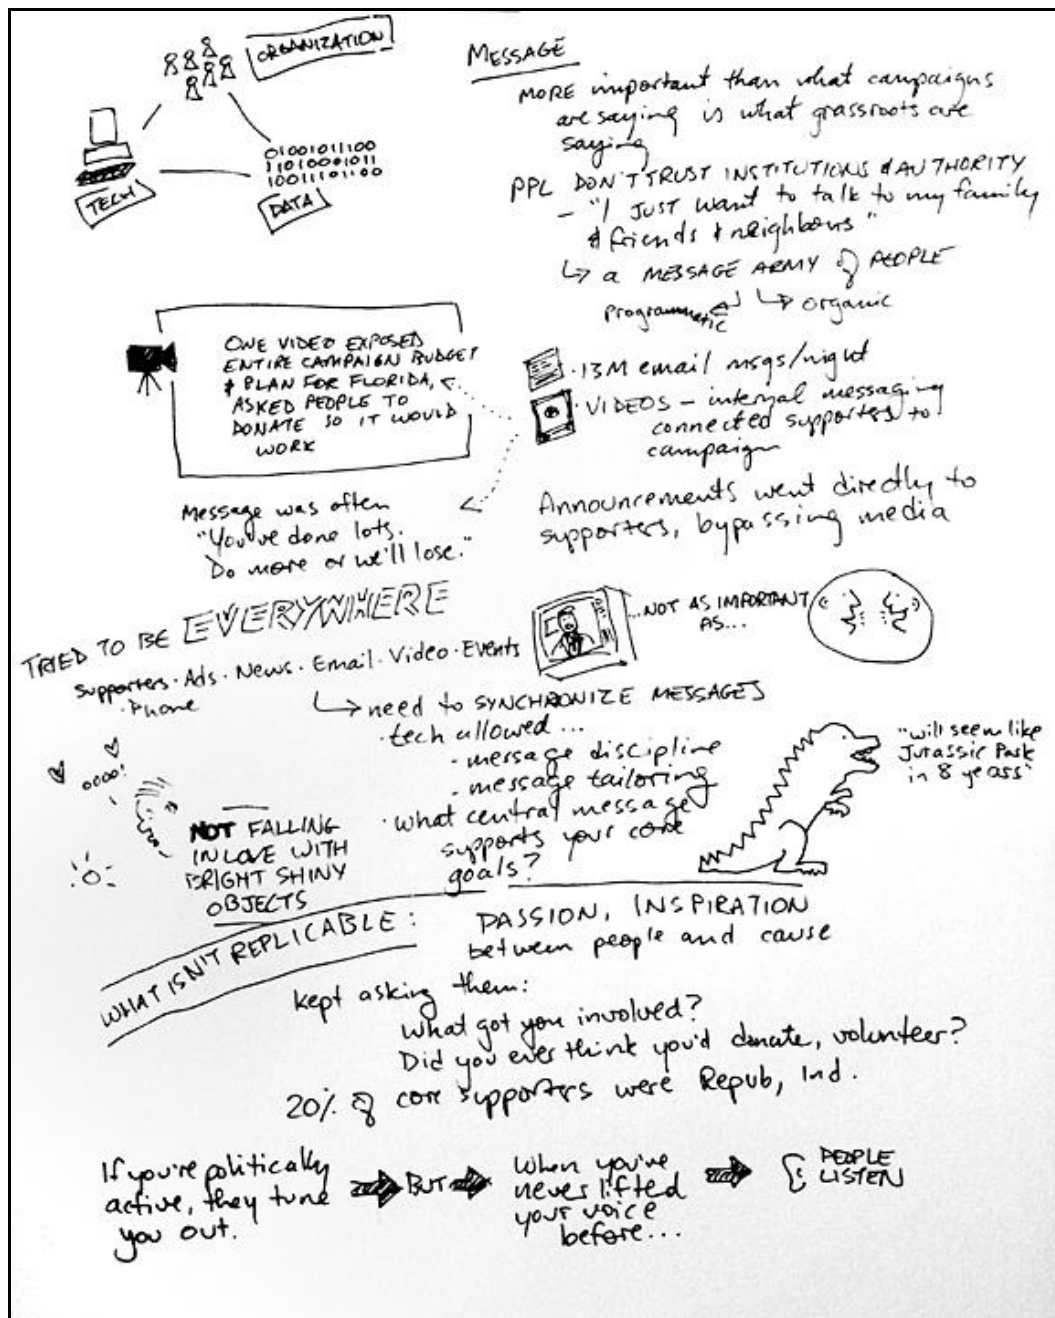 ORGANIZATION
TECH
01001011100
11010001011
10011101100
DATA
MESSAGE
MORE important than what campaigns
are saying is what grassroots are
saying
PPL DON'T TRUST INSTITUTIONS & AUTHORITY
- "I JUST want to talk to my family
& friends & neighbours"
↳ a MESSAGE ARMY of PEOPLE
programmatic ↲ ↳ organic
ONE VIDEO EXPOSED
ENTIRE CAMPAIGN BUDGET
& PLAN FOR FLORIDA,
ASKED PEOPLE TO
DONATE SO IT WOULD
WORK
· 13M email msgs/night
· VIDEOS - internal messaging
connected supporters to
campaign
Message was often
"You've done lots.
Do more or we'll lose."
Announcements went directly to
supporters, bypassing media
TRIED TO BE EVERYWHERE
Supporters · Ads · News · Email · Video · Events
· Phone
...NOT AS IMPORTANT
AS...
↳ need to SYNCHRONIZE MESSAGES
· tech allowed...
- message discipline
- message tailoring
· what central message
supports your core
goals?
"will seem like
Jurassic Park
in 8 years"
oooo!
NOT FALLING
IN LOVE WITH
BRIGHT SHINY
OBJECTS
WHAT ISN'T REPLICABLE:
PASSION, INSPIRATION
between people and cause
kept asking them:
What got you involved?
Did you ever think you'd donate, volunteer?
20% of core supporters were Repub, Ind.
If you're politically
active, they tune
you out.
BUT
When you've
never lifted
your voice
before...
PEOPLE
LISTEN